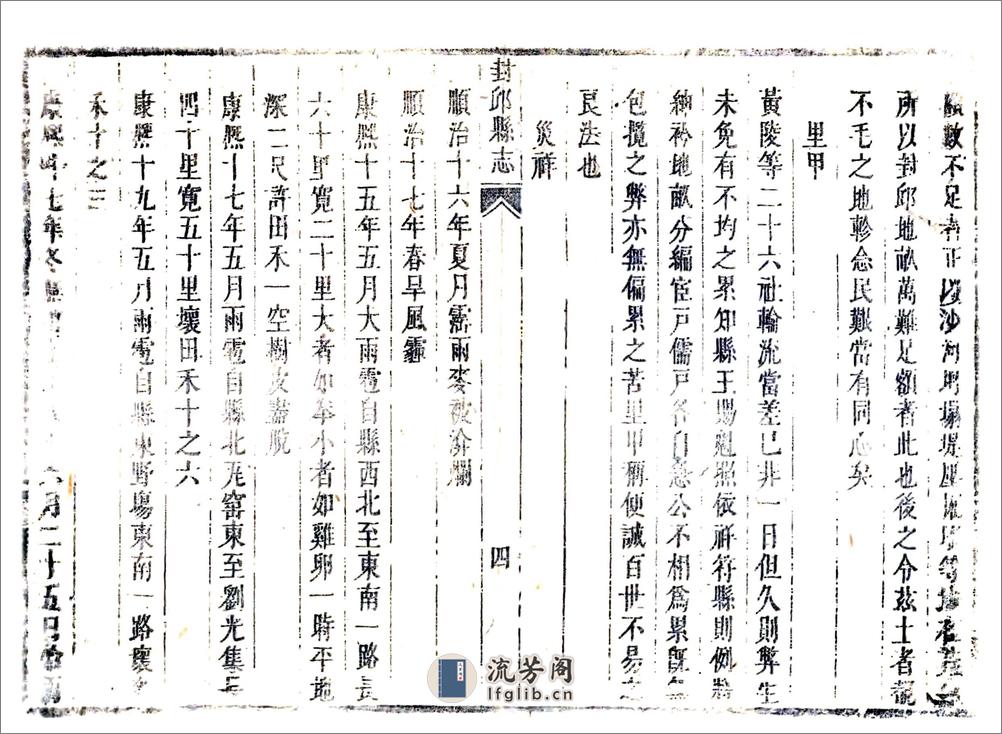 數不足者正以沙河坍塌堤壓
所以封邱地畝萬難足額者此也後之令茲土者覩
不毛之地軫念民艱當有同心矣
里甲
黃陵等二十六社輪流當差已非一日但久則弊生
未免有不均之累知縣王賜魁照依祥符縣則例將
紳衿地畝分編宦戶儒戶各自急公不相為累既無
包攬之弊亦無偏累之苦里甲稱便誠百世不易之
良法也
災祥
封邱縣志
四
順治十六年夏月霪雨麥被渰爛
順治十七年春旱風霾
康熙十五年五月大雨雹自縣西北至東南一路長
六十里寬二十里大者如拳小者如雞卵一時平地
深二尺許田禾一空樹皮盡脫
康熙十七年五月雨雹自縣北瓦窑東至劉光集長
四十里寬五十里壞田禾十之六
康熙十九年五月雨雹自縣東野塲東南一路壞
禾十之三
康熙 十七年冬 六月二十五日
流芳阁
lfglib.cn